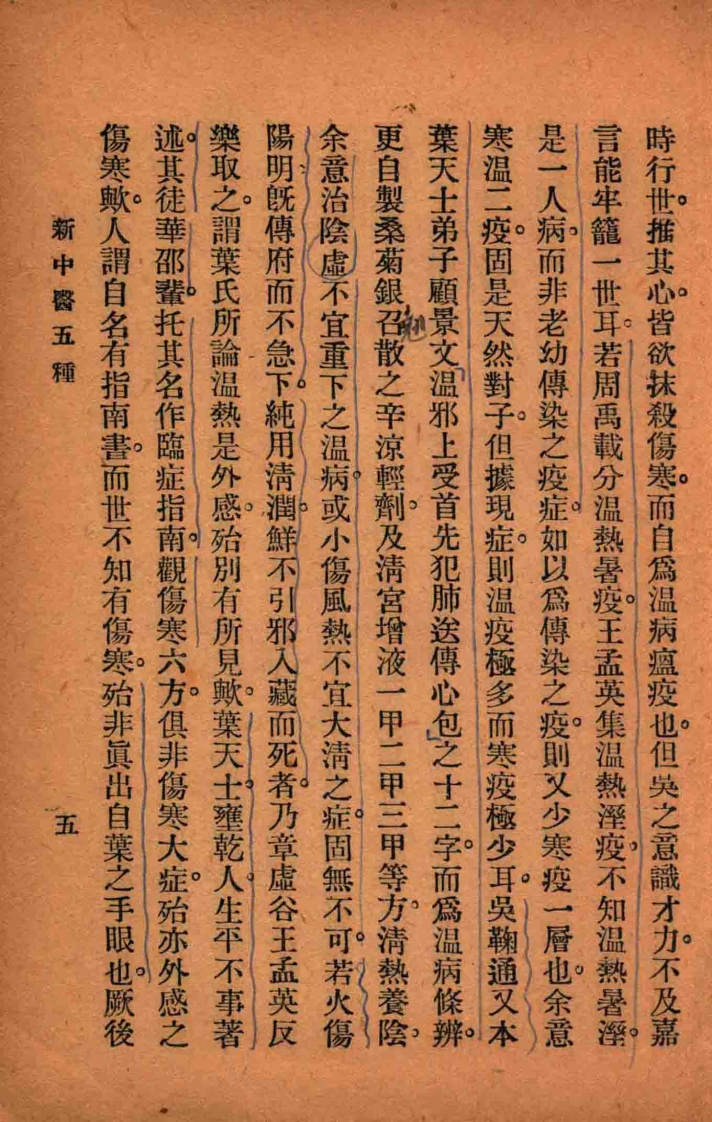 時行世。推其心。皆欲抹殺傷寒。而自爲温病瘟疫也。但吳之意識才力。不及嘉
言能牢籠一世耳。若周禹載分温熱暑疫。王孟英集温熱溼疫。不知温熱暑溼。
是一人病。而非老幼傳染之疫症。如以爲傳染之疫。則又少寒疫一層也。余意
寒温二疫。固是天然對子。但據現症。則温疫極多而寒疫極少耳。吳鞠通又本
葉天士弟子顧景文「温邪上受首先犯肺送傳心包」之十二字。而爲温病條辨。
更自製桑菊銀召散之辛涼輕劑。及淸宮增液一甲二甲三甲等方。淸熱養陰。
余意治陰虛不宜重下之温病。或小傷風熱不宜大淸之症。固無不可。若火傷
陽明旣傳府而不急下。純用淸潤。鮮不引邪入藏而死者。乃章虛谷王孟英反
樂取之。謂葉氏所論温熱是外感。殆別有所見歟。葉天士壅乾人。生平不事著
述。其徒華邵輩。托其名作臨症指南。觀傷寒六方。俱非傷寒大症。殆亦外感之
傷寒歟。人謂自名有指南書。而世不知有傷寒。殆非眞出自葉之手眼也。厥後
新中醫五種
五